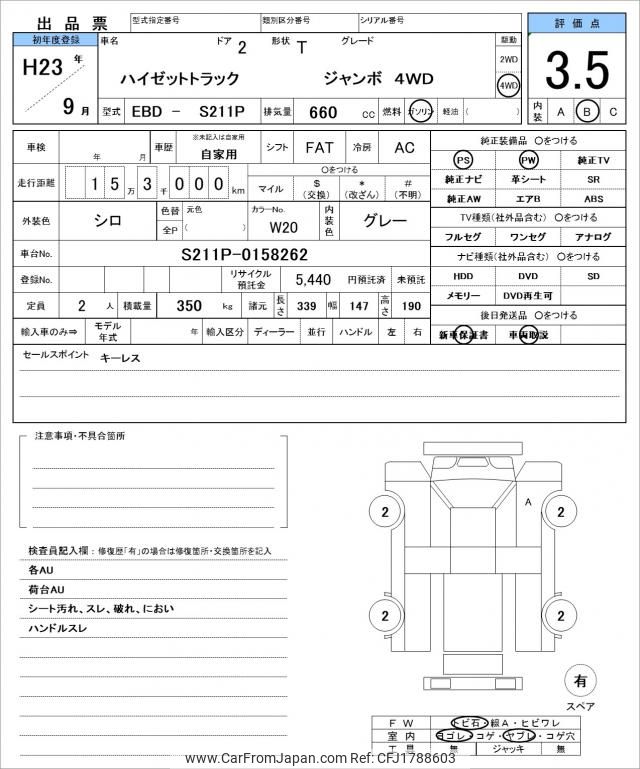 出品票 型式指定番号 類別区分番号 シリアル番号 評価点
初年度登録 車名 ドア 2 形状 T グレード 駆動
H23 年 ハイゼットトラック ジャンボ 4WD 2WD 3.5
4WD
9 月 型式 EBD － S211P 排気量 660 cc 燃料 ガソリン 軽油 ( ) 内装 A B C
車検 年 月 車歴 ※未記入は自家用 自家用 シフト FAT 冷房 AC 純正装備品 〇をつける
PS PW 純正TV
走行距離 1 5 万 3 千 0 0 0 km 〇をつける
マイル $ (交換) * (改ざん) # (不明) 純正ナビ 革シート SR
純正AW エアB ABS
外装色 シロ 色替 元色 カラーNo. 内装色 グレー TV種類(社外品含む) 〇をつける
全P ( ) W20 フルセグ ワンセグ アナログ
車台No. S211P-0158262 ナビ種類(社外品含む) 〇をつける
登録No. リサイクル預託金 5,440 円預託済 未預託 HDD DVD SD
定員 2 人 積載量 350 kg 諸元 長さ 339 幅 147 高さ 190 メモリー DVD再生可
後日発送品 〇をつける
輸入車のみ⇒ モデル年式 年 輸入区分 ディーラー 並行 ハンドル 左 右 新車保証書 車両取説
セールスポイント キーレス
注意事項・不具合箇所
A
2 2
検査員記入欄：修復歴「有」の場合は修復箇所・交換箇所を記入
各AU
荷台AU
シート汚れ、スレ、破れ、におい
ハンドルスレ
2 2
有
スペア
FW トビ石・線A・ヒビワレ
室内 ヨゴレ・コゲ・ヤブレ・コゲ穴
工具 無 ジャッキ 無
www.CarFromJapan.com Ref: CFJ1788603